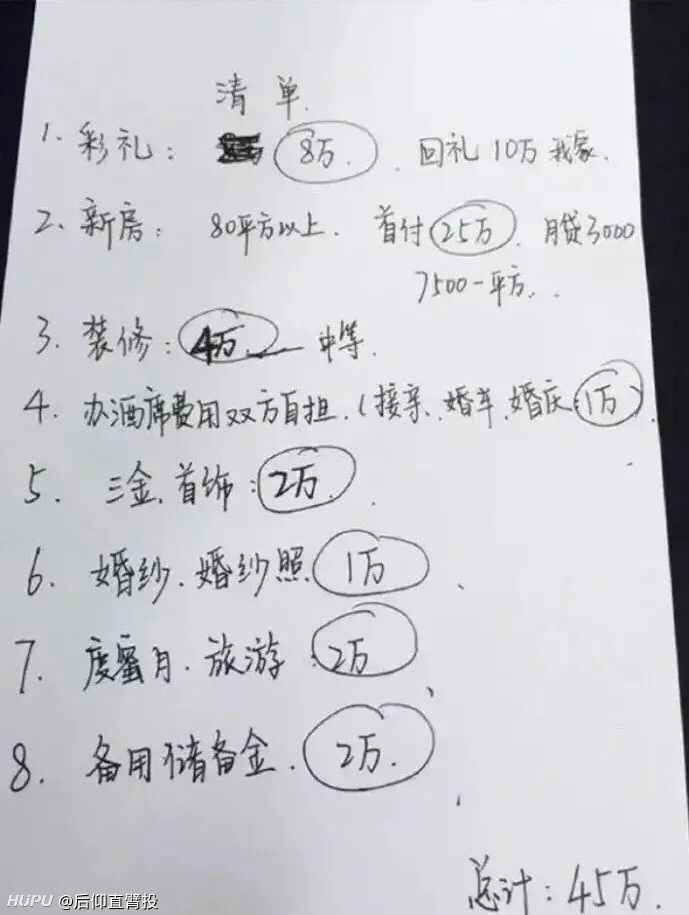 清单.
1. 彩礼: 8万. 回礼10万我家.
2. 新房: 80平方以上. 首付25万. 月贷3000
7500一平方.
3. 装修: 4万 中等.
4. 办酒席费用双方自担.(接亲、婚车、婚庆:1万)
5. 三金.首饰:2万.
6. 婚纱.婚纱照1万、
7. 度蜜月.旅游:2万、
8. 备用储备金.2万.
总计:45万.
HUPU @后仰直臂投